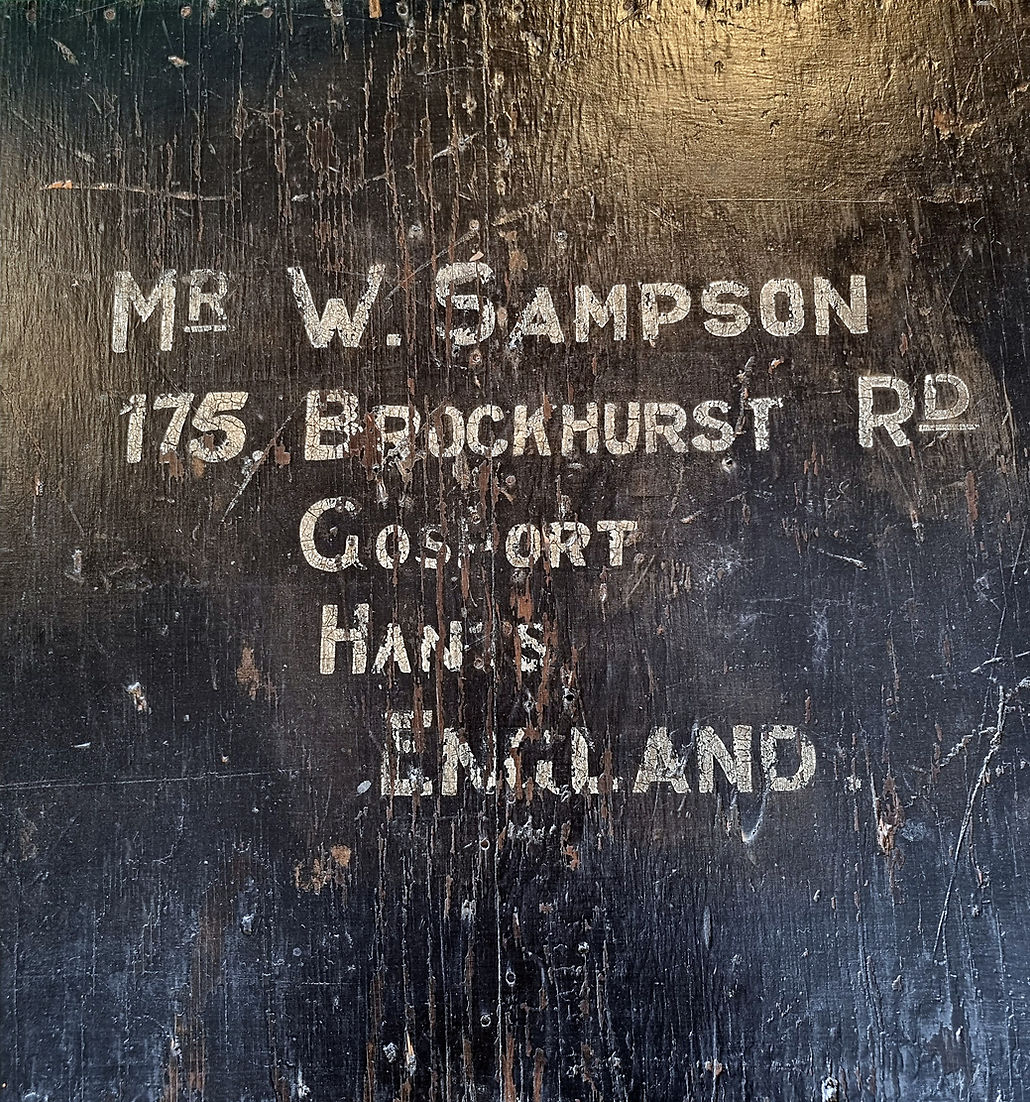 MR W. SAMPSON
175, BROCKHURST RD
GOSPORT
HANTS
ENGLAND.